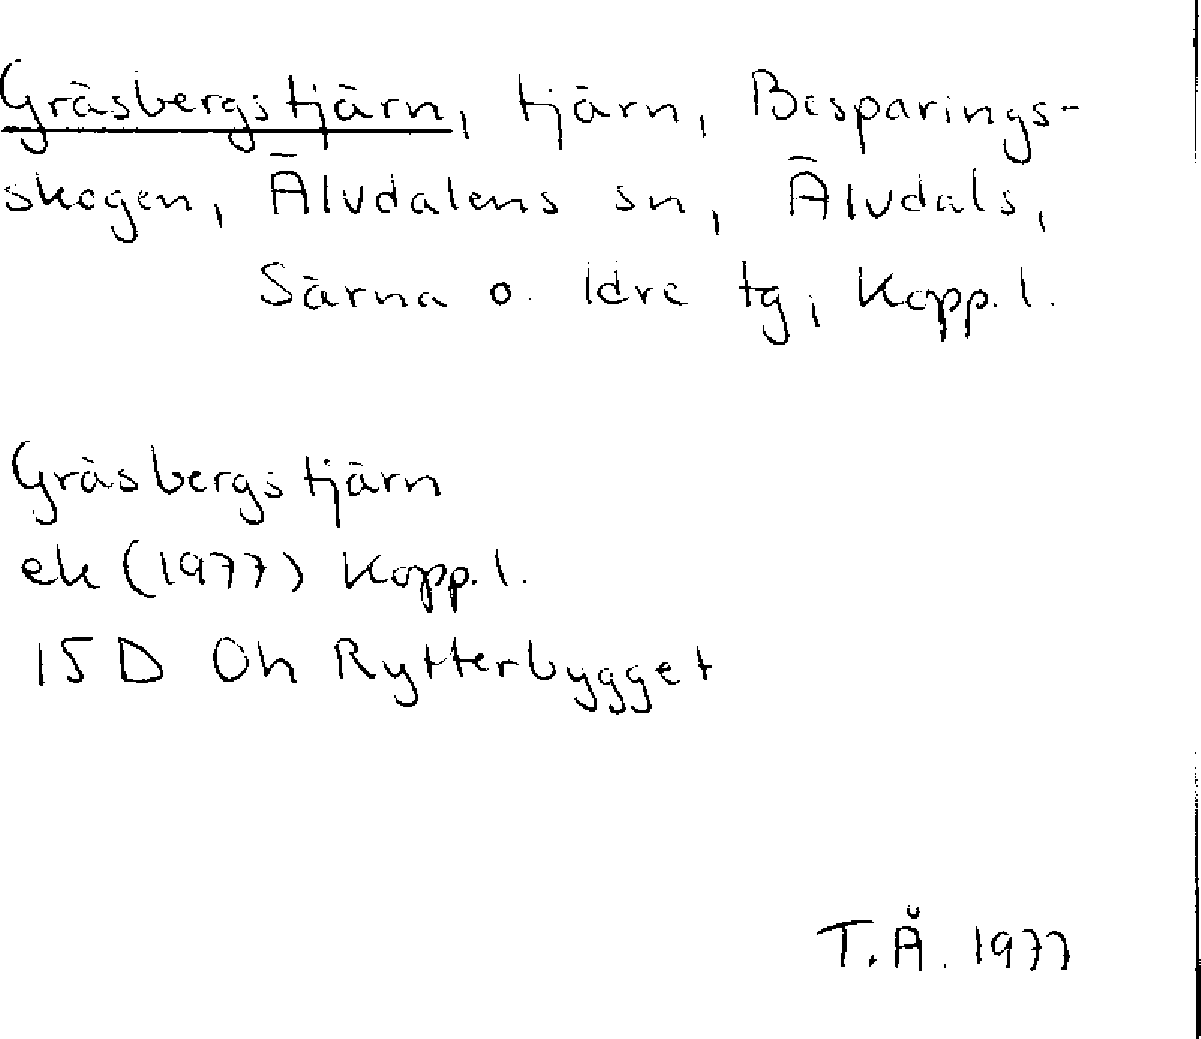 Gråsbergstjärn, tjärn, Besparings-
skogen, Älvdalens sn, Älvdals,
Särna o. Idre tg, Kopp. l.
Gråsbergstjärn
ek (1977) Kopp. l.
15 D 0h Rytterbygget
T.Å. 1977